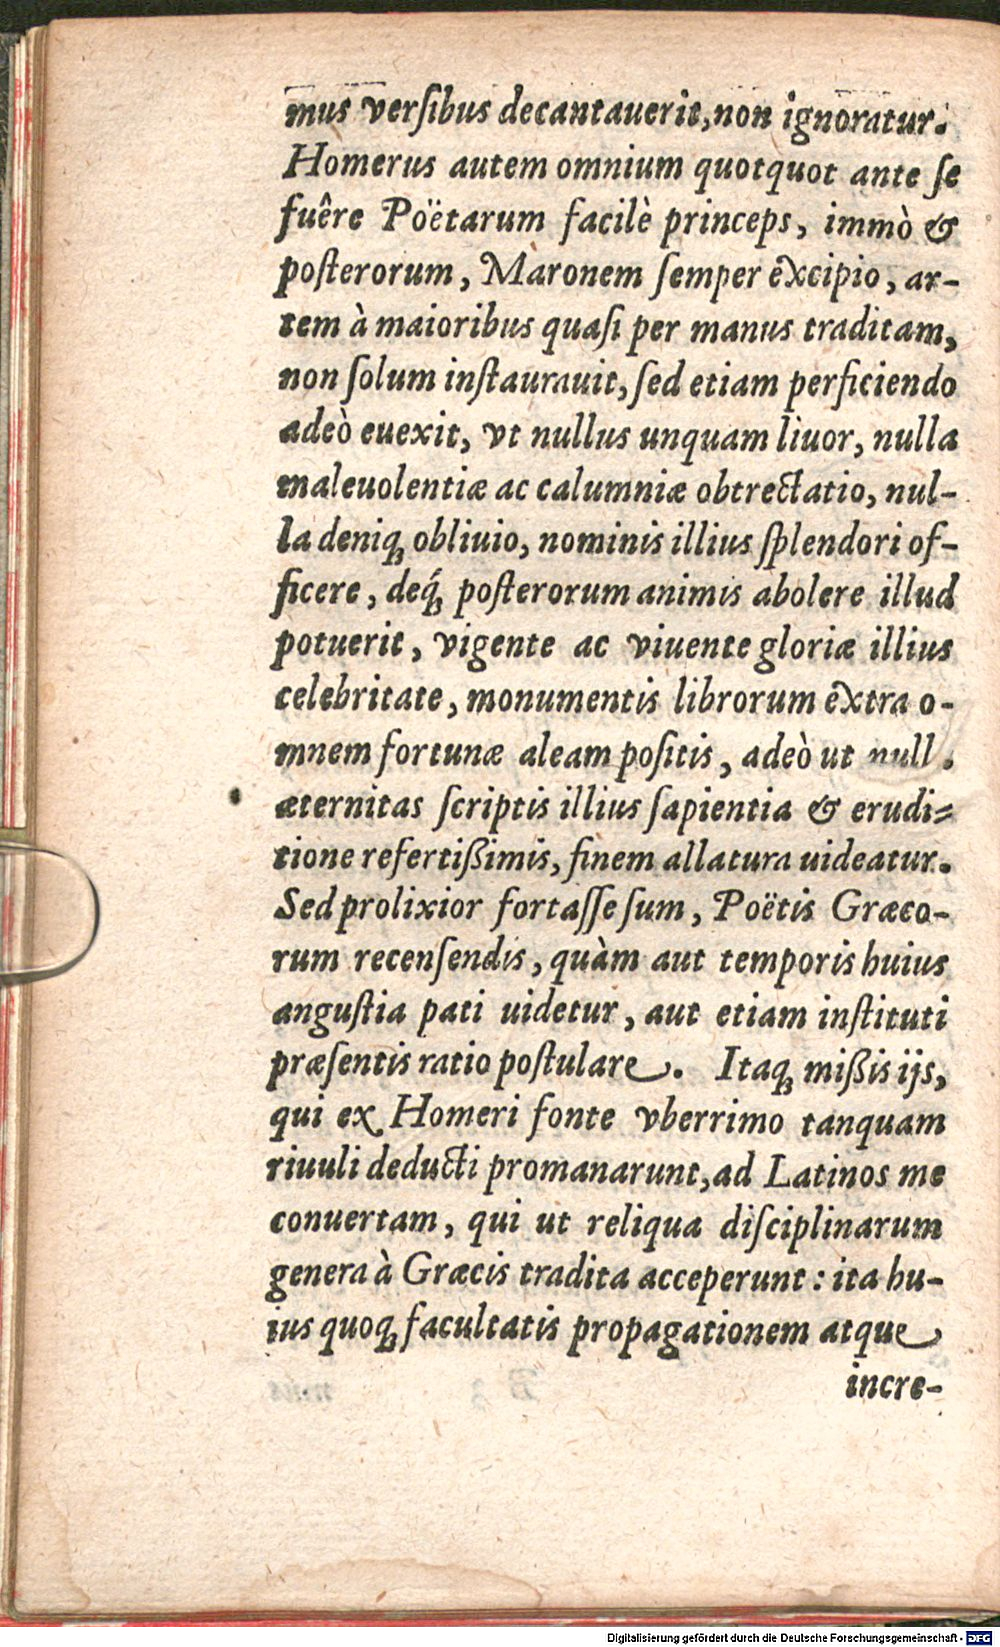 mus verſibus decantauerit, non ignoratur.
Homerus autem omnium quotquot ante ſe
fuêre Poëtarum facilè princeps, immò &
poſterorum, Maronem ſemper excipio, ar-
tem à maioribus quaſi per manus traditam,
non ſolum inſtaurauit, ſed etiam perficiendo
adeò euexit, vt nullus unquam liuor, nulla
maleuolentiæ ac calumniæ obtrectatio, nul-
la deniq; obliuio, nominis illius ſplendori of-
ficere, deq́; poſterorum animis abolere illud
potuerit, vigente ac viuente gloriæ illius
celebritate, monumentis librorum extra o-
mnem fortunæ aleam poſitis, adeò ut null
æternitas ſcriptis illius ſapientia & erudi-
tione refertißimis, finem allatura uideatur.
Sed prolixior fortaſſe ſum, Poëtis Græco-
rum recenſendis, quàm aut temporis huius
anguſtia pati uidetur, aut etiam inſtituti
præſentis ratio poſtulare. Itaq; mißis ijs,
qui ex Homeri fonte vberrimo tanquam
riuuli deducti promanarunt, ad Latinos me
conuertam, qui ut reliqua diſciplinarum
genera à Græcis tradita acceperunt: ita hu-
ius quoq; facultatis propagationem atque
incre-
Digitalisierung gefördert durch die Deutsche Forschungsgemeinschaft - DFG